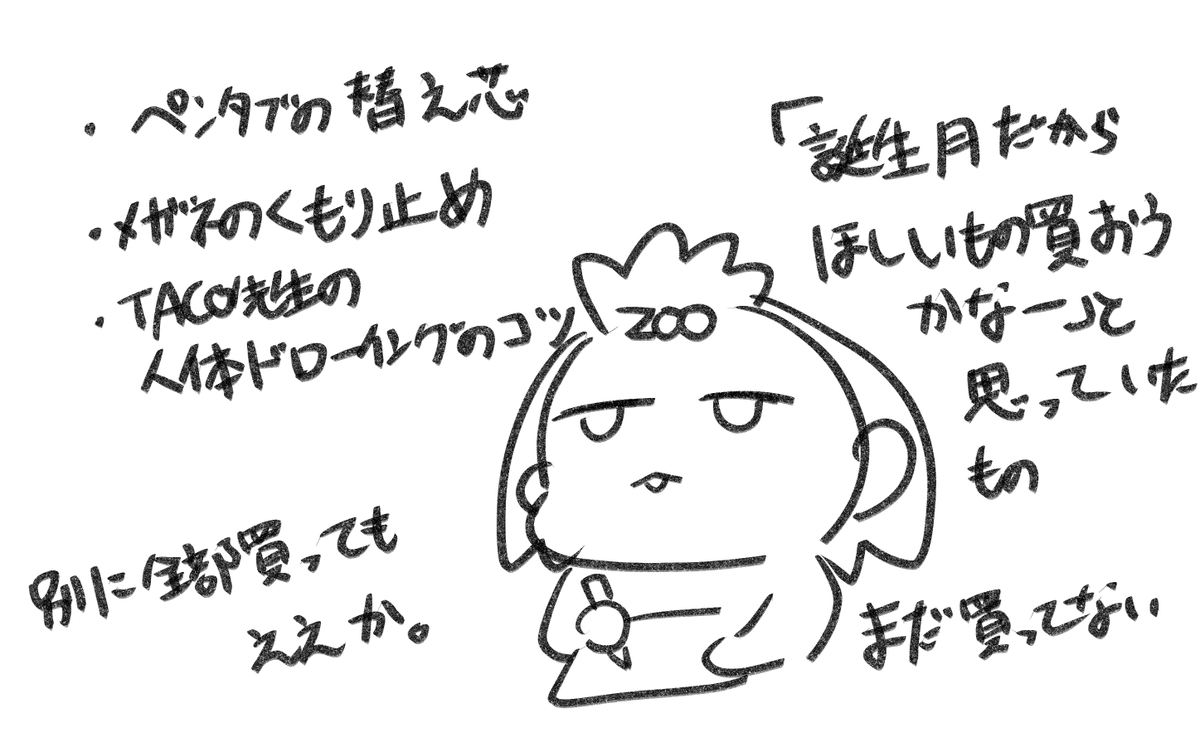 ・ペンタブの替え芯
・メガネのくもり止め
・TACO先生の
人体ドローイングのコツ
「誕生月だから
ほしいもの買おう
かなー」と
思っていた
もの
ZOO
別に全部買っても
ええか。
まだ買ってない